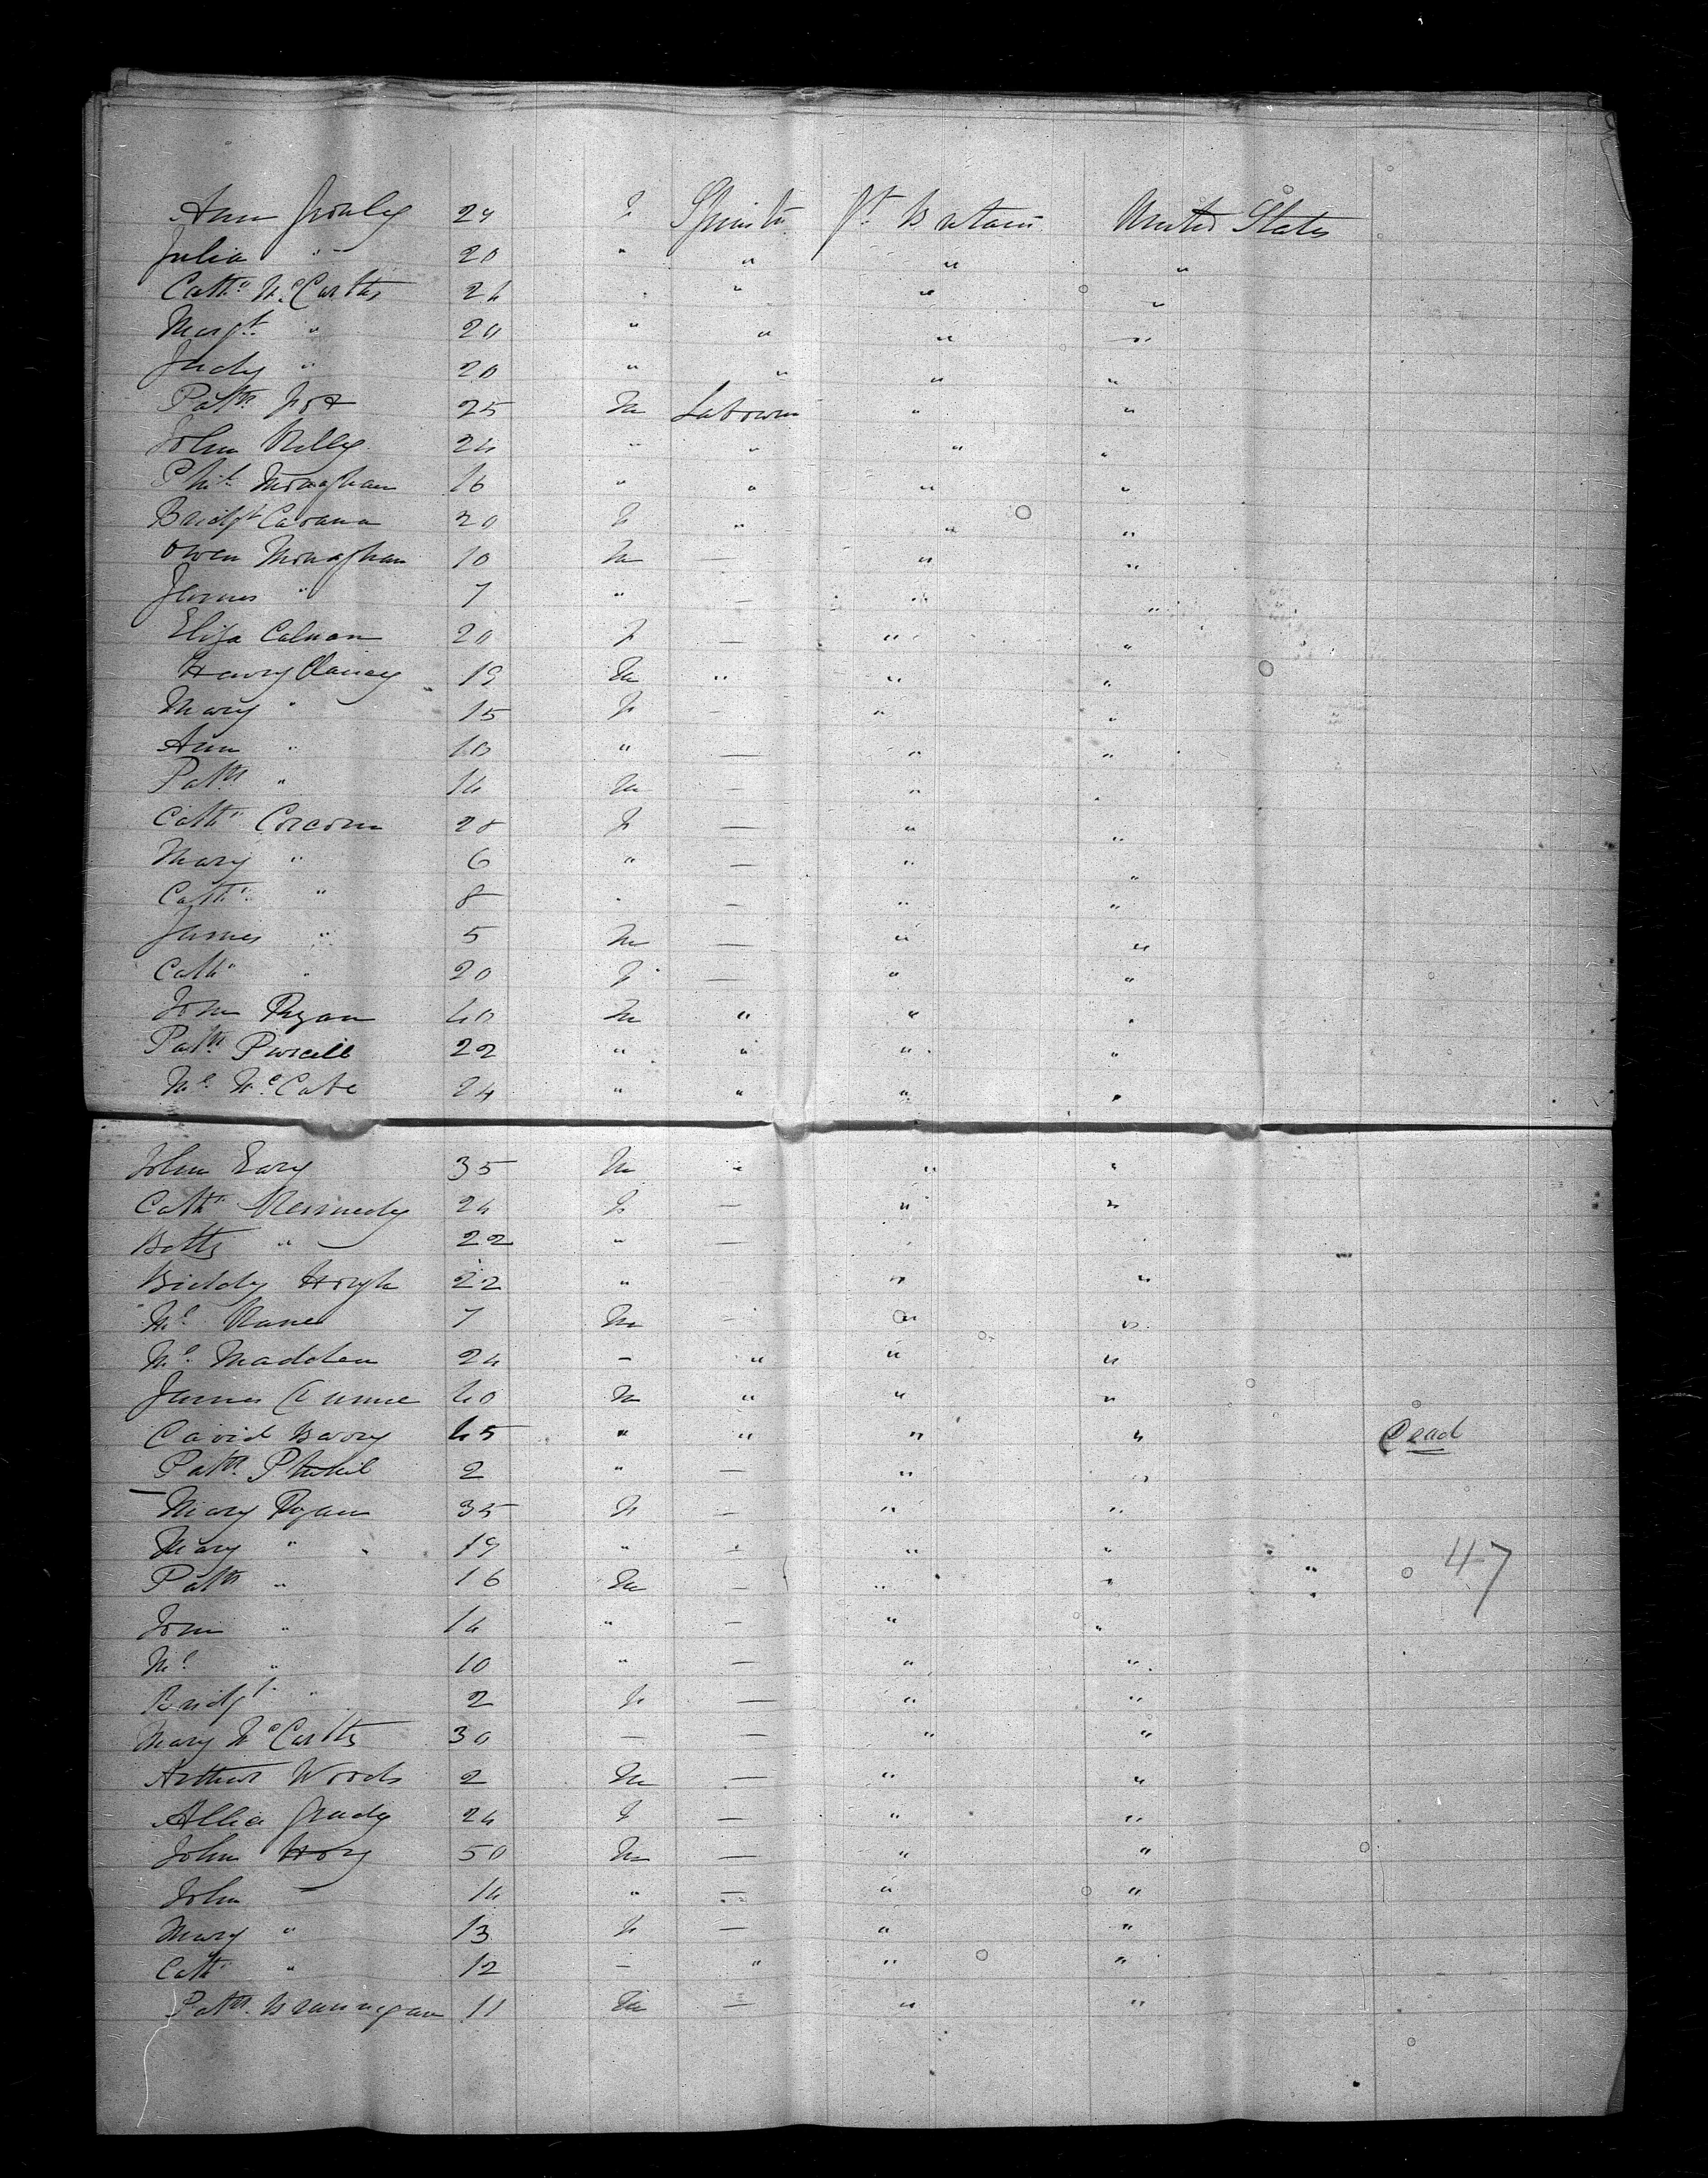 Ann Gronly 24 F Spinster Gt Britain United States
Julia " 20 " " " "
Cathn McCarthy 24 " " " "
Margt " 20 " " " "
Judy " 20 " " " "
Patk Fox 25 M Labourer " "
John Kelly 24 " " " "
Phil Monaghan 16 " " " "
Bridgt Cavana 20 F " " "
Owen Monaghan 10 M — " "
James " 7 " — " "
Eliza Calnan 20 F — " "
Henry Clancy 19 M " " "
Mary " 15 F — " "
Ann " 10 " — " "
Patk " 14 M — " "
Cathn Corcoran 28 F — " "
Mary " 6 " — " "
Cathn " 8 " — " "
James " 5 M — " "
Cathn " 20 F — " "
John Ryan 40 M " " "
Patk Purcell 22 " " " "
Ml McCabe 24 " " " "
John Eary 35 M " " "
Cathn Kennedy 24 F — " "
Betty " 22 " — " "
Biddy Hough 22 " " "
Ml Kane 7 M — " "
Ml Madden 24 — " " "
James 40 M " " "
David Barry 45 " " " " Dead
Patk 2 " — " "
Mary Ryan 35 F — " "
Mary " 19 " — " "
Patk " 16 M — " "
47
John " 14 " — " "
Ml " 10 " — " "
Bridgt " 2 F — " "
Mary McCarthy 30 — — " "
Arthur Woods 2 M — " "
Allia Grady 24 F — " "
John Hoey 50 M — " "
John — 14 " — " "
Mary " 13 F — " "
Cathn " 12 — " " "
Patk Brannegan 11 M — " "